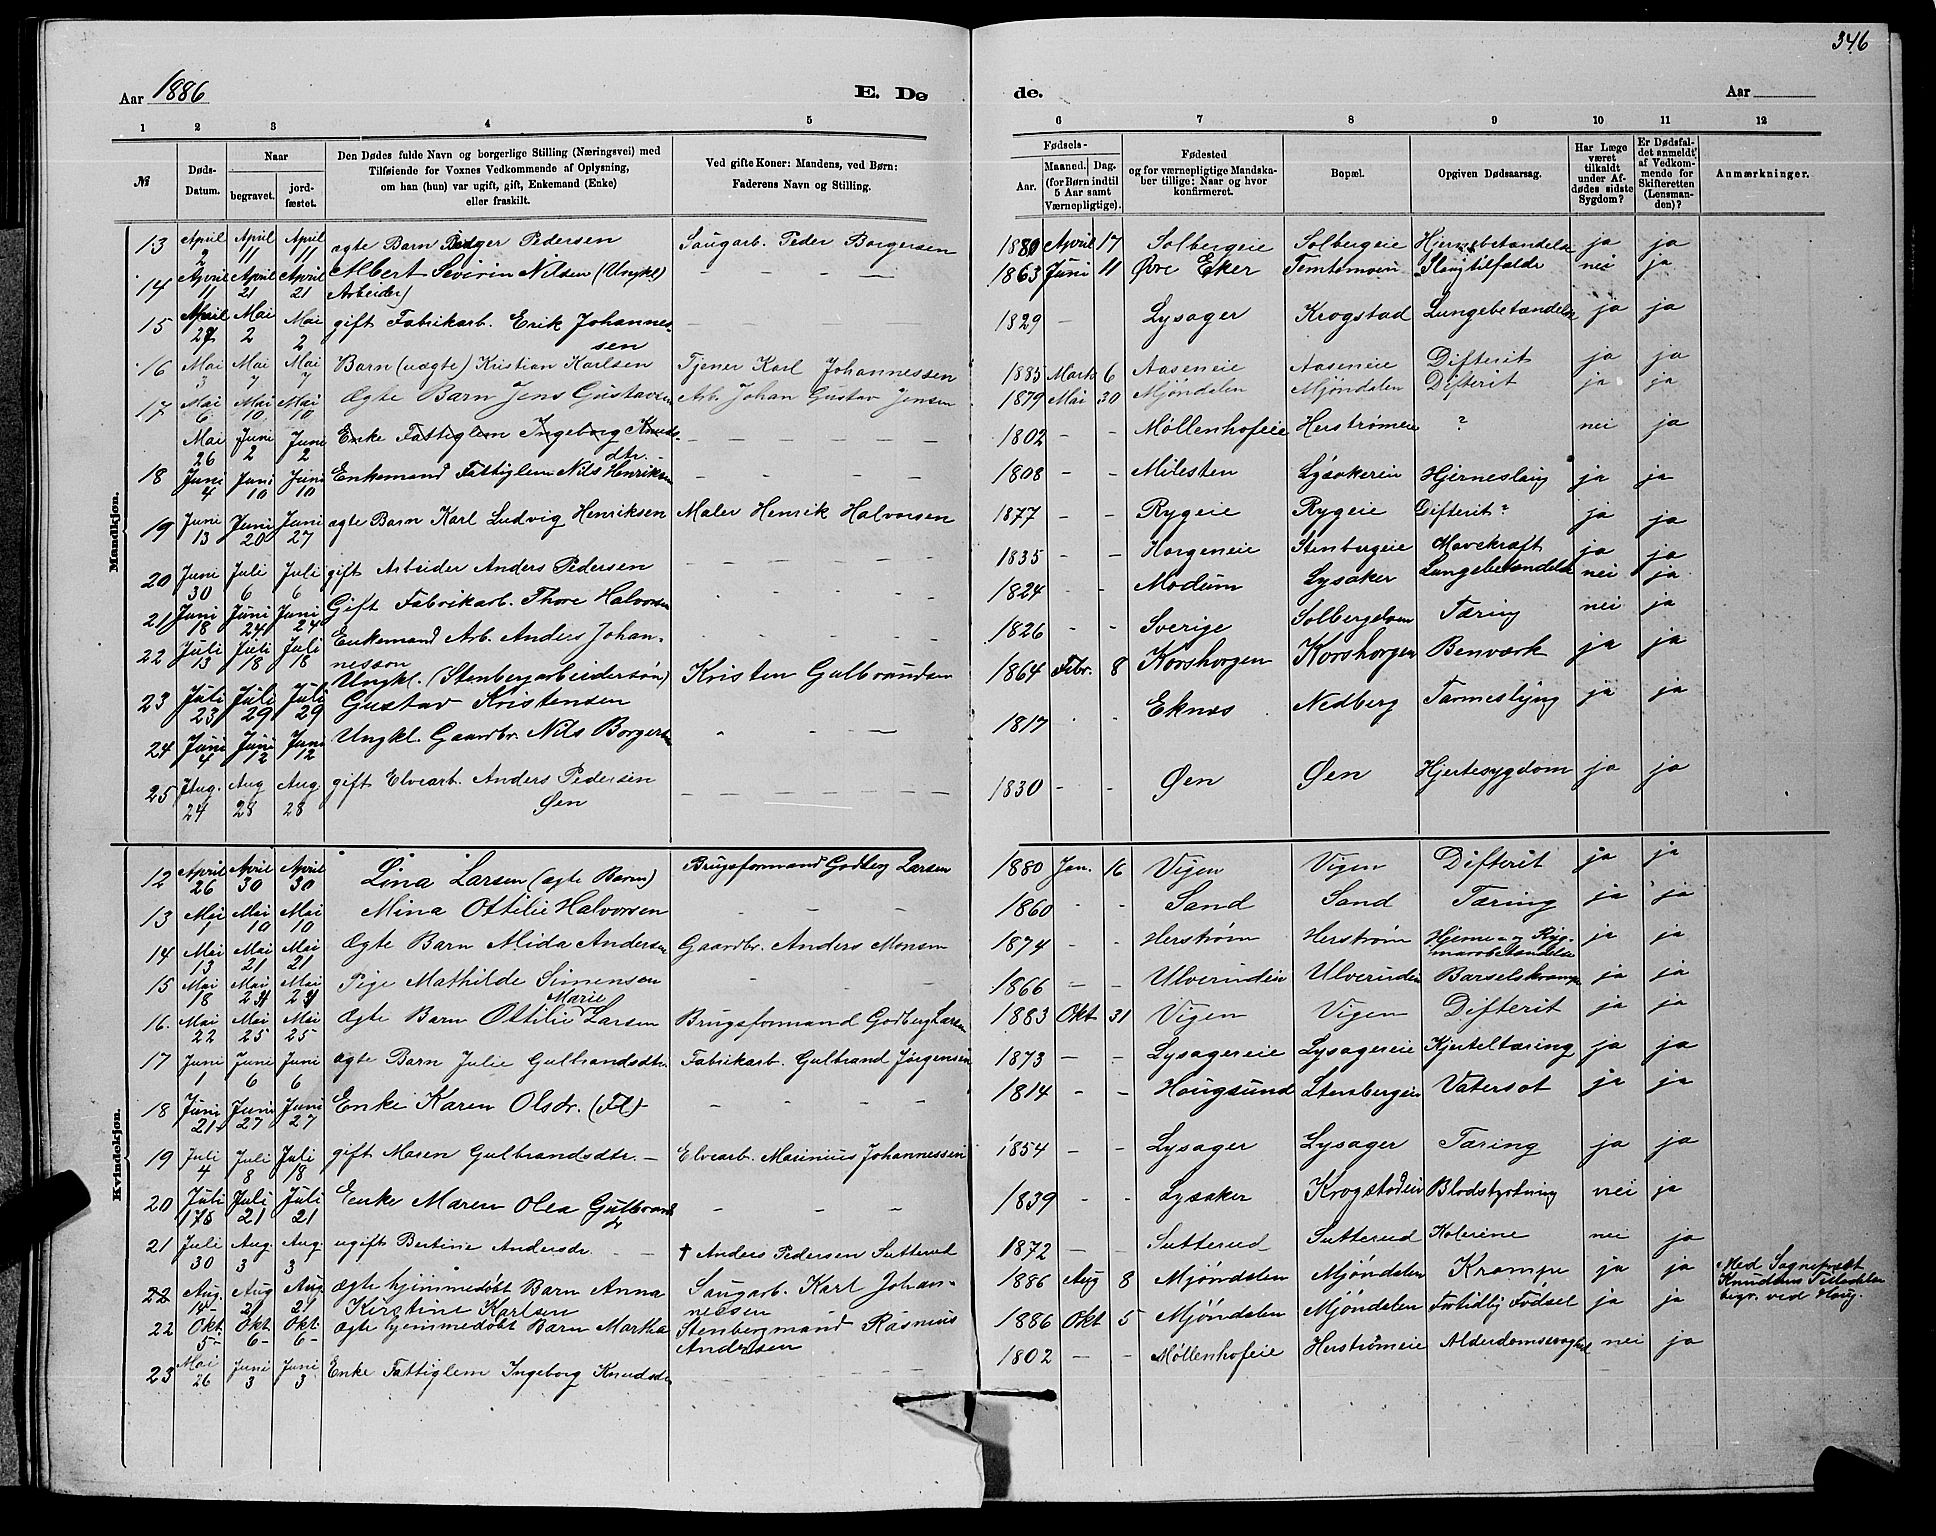 346
Aar 1886
E. Dø
de.
Aar
1 2 3 4 5 6 7 8 9 10 11 12
№
Døds-Datum.
Naar
begravet.
jord-fæstet.
Den Dødes fulde Navn og borgerlige Stilling (Næringsvei) med
Tilføiende for Voxnes Vedkommende af Oplysning,
om han (hun) var ugift, gift, Enkemand (Enke)
eller fraskilt.
Ved gifte Koner: Mandens, ved Børn:
Faderens Navn og Stilling.
Fødsels-
Aar.
Maaned. Dag.
(for Børn indtil
5 Aar samt
Værnepligtige).
Fødested
og for værnepligtige Mandska-
ber tillige: Naar og hvor
konfirmeret.
Bopæl.
Opgiven Dødsaarsag.
Har Læge
været
tilkaldt
under Af-
dødes sidste
Sygdom?
Er Dødsfal-
det anmeldt
af Vedkom-
mende for
Skifteretten
(Lensman-
den)?
Anmærkninger.
Mandkjøn.
13 April 2 April 11 April 11 ægte Barn Borger Pedersen Saugarb. Peder Borgersen 1880 April 17 Solbergeie Solbergeie Hjernebetændelse ja ja
14 April 11 April 21 April 21 Albert Severin Nilsen (Ungkl) — — — — 1863 Juni 11 Øvre Eker Temtemoen Slagtilfælde nei ja
Arbeider)
15 April 27 Mai 2 Mai 2 gift Fabrikarb. Erik Johannes- — — — — 1829 - Lysager Krogstad Lungebetændelse ja ja
sen
16 Mai 3 Mai 7 Mai 7 Barn (uægte) Kristian Karlsen Tjener Karl Johannessen 1885 Marts 6 Aaseneie Aaseneie Difterit ja ja
17 Mai 6 Mai 10 Mai 10 Ægte Barn Jens Gustavsen Arb. Johan Gustav Jensen 1879 Mai 30 Mjøndalen Mjøndalen Difterit ja ja
Mai 26 Juni 2 Juni 2 Enke Fattiglem Ingeborg Knuds- — — — — 1802 - - Møllenhofeie Herstrømeie ? nei ja
dtr.
18 Juni 4 Juni 10 Juni 10 Enkemand Fattiglem Nils Henriksen - - - - 1808 - - Milesten Lysakereie Hjerneslag ja ja
19 Juni 13 Juni 20 Juni 27 ægte Barn Karl Ludvig Henriksen Maler Henrik Halvorsen 1877 - - Rygeie Rygeie Difterit? ja ja
20 Juni 30 Juli 6 Juli 6 gift Arbeider Anders Pedersen - - - - 1835 - - Horgeneie Stenbergeie Mavekræft ja ja
21 Juni 18 Juni 24 Juni 24 Gift Fabrikarb. Thore Halvorsen - - - - 1824 - - Modum Lysaker Lungebetændelse nei ja
22 Juli 13 Juli 18 Juli 18 Enkemand Arb. Anders Johan- - - - - 1826 - - Sverige Tæring nei ja
nesson
23 Juli 23 Juli 29 Juli 29 Ungkl. (Stenbergarbeidersøn) Kristen Gulbrandsen 1864 Febr. 8 Korshorgen Korshorgen Benværk ja ja
Gustav Kristensen
24 Juni 4 Juni 12 Juni 12 Ungkl. Gaardbr. Nils Borgersen - - - 1817 - - Eknæs Nedberg Tarmeslyng ja ja
25 Aug. 24 Aug 28 Aug. 28 gift Elvearb. Anders Pedersen — — — — 1830 - - Øen Øen Hjertesygdom ja ja
Øen
Kvindekjøn.
12 April 26 April 30 April 30 Lina Larsen (ægte Barn) Brugsformand Godberg Larsen 1880 Jan. 16 Vigen Vigen Difterit ja ja
13 Mai 1 Mai 10 Mai 10 Mina Ottilie Halvorsen - - - 1860 - - Sand Sand Tæring ja ja
14 Mai 13 Mai 21 Mai 21 Ægte Barn Alida Andersen Gaardbr. Anders Monsen 1874 - - Herstrøm Herstrøm Hjerne- og Ryg- ja ja
marvbetændelse
15 Mai 18 Mai 24 Mai 24 Pige Mathilde Simensen - - 1866 - - Ulverudeie Ulverudeie Barselskrampe ja ja
16. Mai 22 Mai 25 Mai 25 Ægte Barn Ottilie Marie Larsen Brugsformand Godberg Larsen 1883 Okt 31 Vigen Vigen Difterit ja ja
17 Juni 1 Juni 6 Juni 6 ægte Barn Julie Gulbrandsdtr. Fabrikarb. Gulbrand Jørgensen 1873 - - Lysagereie Lysagereie Kjerteltæring ja ja
18 Juni 21 Juni 27 Juni 27 Enke Karen Olsdr. (Fl) - - - - 1814 - - Hougsund Stenbergeie Vatersot ja ja
19 Juli 4 Juli 8 Juli 18 gift Maren Gulbrandsdtr. — Elvearb. Marinius Johannessen 1854 - - Lysager Lysager Tæring ja ja
20 Juli 175 Juli 21 Juli 21 Enke Maren Olea Gulbrands - - - 1839 - - Lysaker Krogstadeie Blodstyrtning nei ja
21 Juli 30 Aug. 3 Aug. 3 ugift Bertine Andersdr. — — † Anders Pedersen Sutterud 1872 - - Sutterud Sutterud Kolerine nei ja
22 Aug. 14 Aug 21 Aug. 21 ægte hjemmedøbt Barn Anna Saugarb. Karl Johan- 1886 Aug 8 Mjøndalen Mjøndalen Krampe ja ja Med Sogneprest
Kirstine Karlsen nessen Knudtus Tilladelse
begr. ved Haug.
22 Okt. 5 Okt 6 Okt. 6 ægte hjemmedøbt Barn Martha Stenbergmand Rasmus 1886 Okt 5 Mjøndalen Mjøndalen Fortidlig Fødsel ja ja
Andersen
23 Mai 26 Juni 3 Juni 3 Enke Fattiglem Ingeborg Knudsdr. — — — — 1802 - - Møllenhofeie Herstrømeie Alderdomssvaghed nei ja